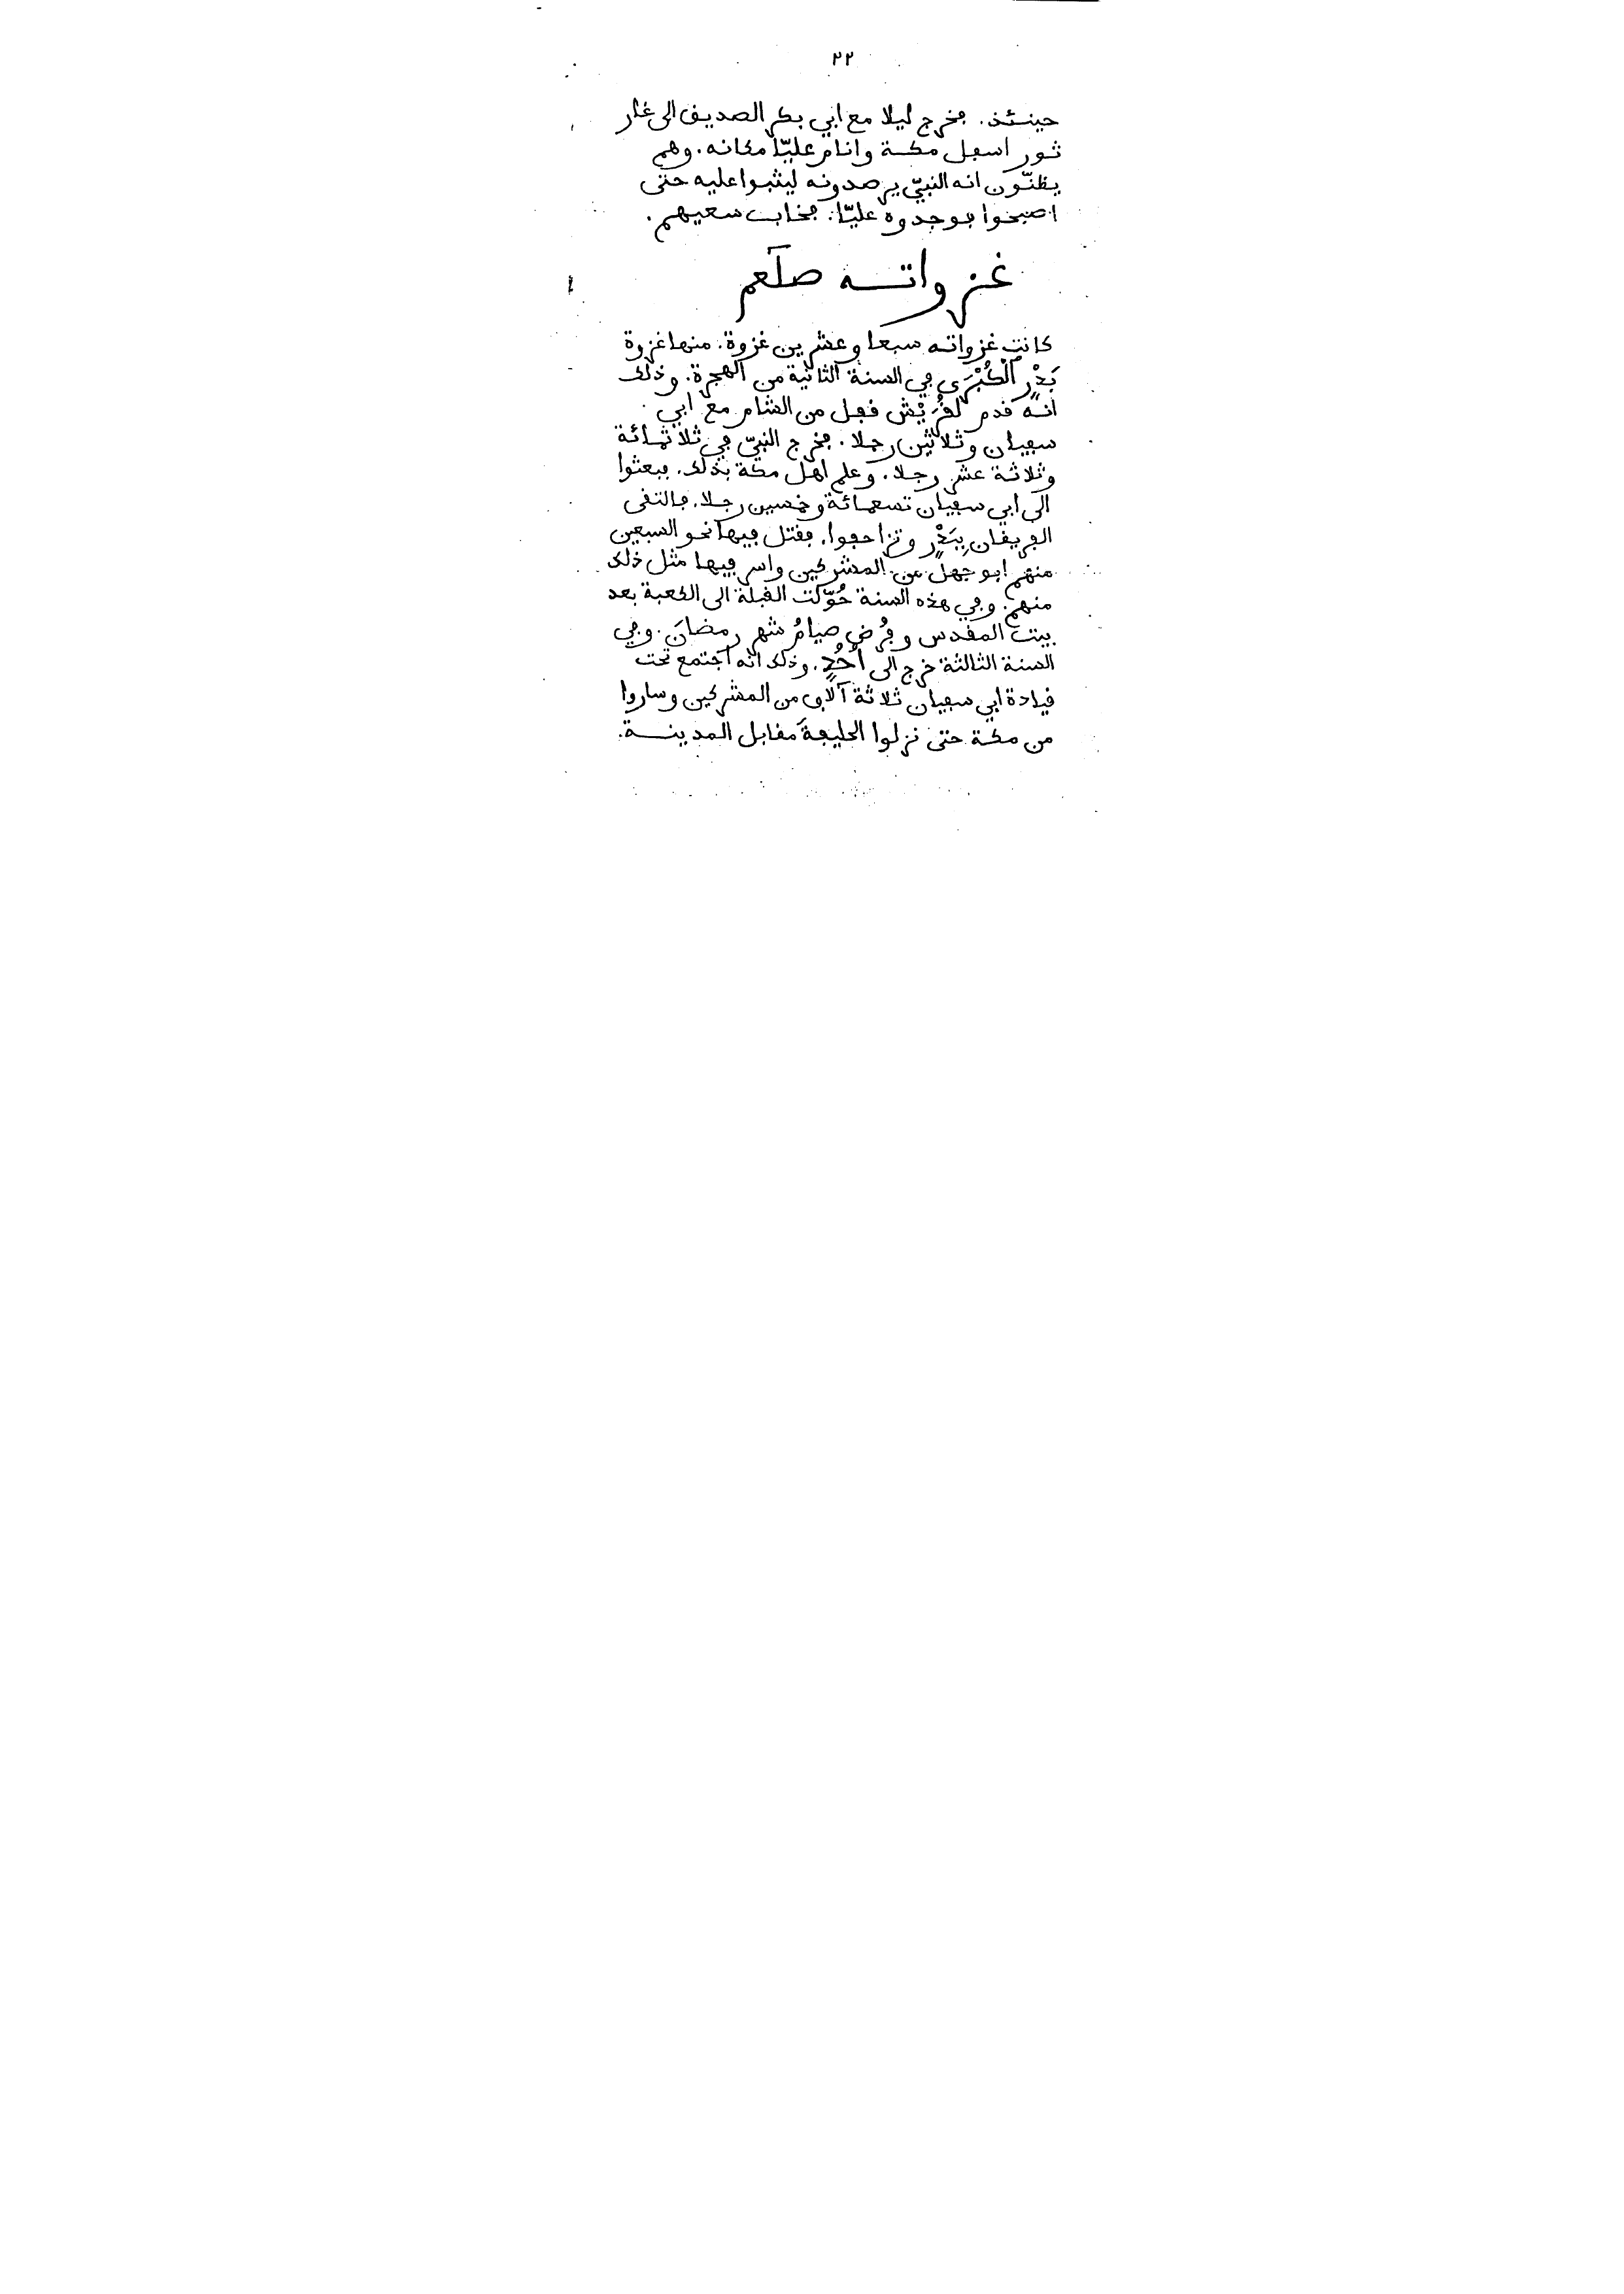 ٢٢
حينئذ. فخرج ليلا مع ابي بكر الصديق الى غار
ثور اسفل مكة وانام عليّا مكانه. وهم
يظنّون انه النبيّ يرصدونه ليثبوا عليه حتى
اصبحوا فوجدوه عليّا. فخاب سعيهم.
غزواته صلعم
كانت غزواته سبعا وعشرين غزوة. منها غزوة
بَدْرٍ الْكُبْرَى في السنة الثانية من الهجرة. وذلك
انه قدم لقُرَيْش قفل من الشام مع ابي
سفيان وثلاثين رجلا. فخرج النبيّ في ثلاثمائة
وثلاثة عشر رجلا. وعلم اهل مكة بذلك. فبعثوا
الى ابي سفيان تسعمائة وخمسين رجلا. فالتقى
الفريقان بِبَدْرٍ وتزاحفوا. فقتل فيها نحو السبعين
منهم ابو جهل من المشركين واسر فيها مثل ذلك
منهم. وفي هذه السنة حُوّلت القبلة الى الكعبة بعد
بيت المقدس وفُرض صيامُ شهر رمضانَ. وفي
السنة الثالثة خرج الى أُحُدٍ. وذلك انه اجتمع تحت
قيادة ابي سفيان ثلاثة آلاف من المشركين وساروا
من مكة حتى نزلوا الحليفةَ مقابل المدينة.